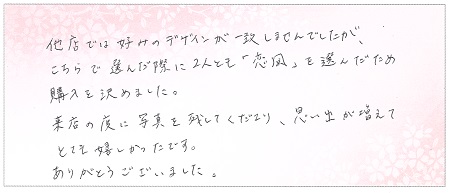 他店では好みのデザインが一致しませんでしたが、
こちらで選んだ際に2人とも「恋風」を選んだため
購入を決めました。
来店の度に写真を残してくださり、思い出が増えて
とても嬉しかったです。
ありがとうございました。